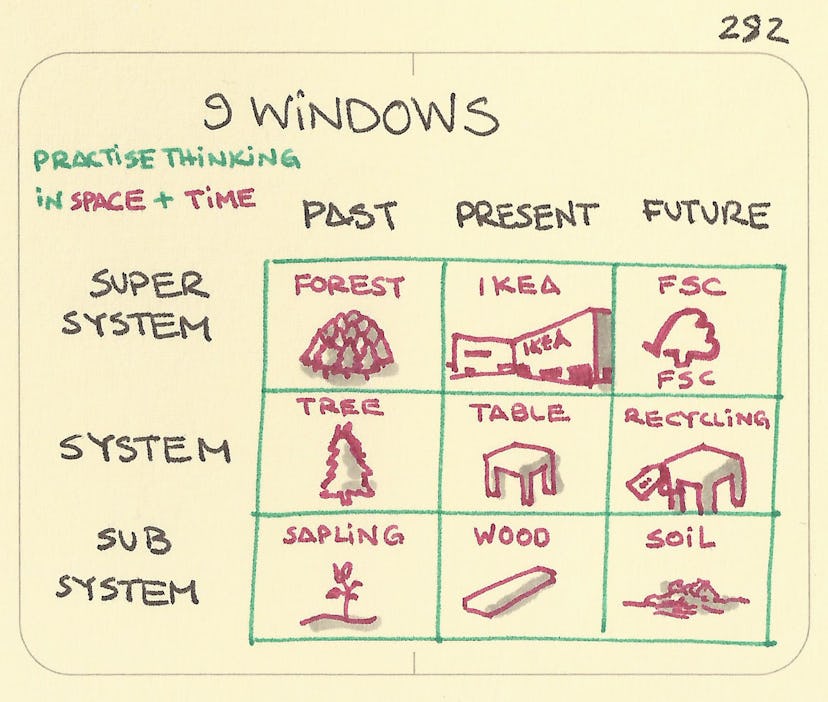 292
9 WiNDOWS
PRACTiSE THiNKiNG
iN SPACE + TiME
PAST PRESENT FUTURE
SUPER SYSTEM
FOREST IKEA FSC
IKEA
FSC
SYSTEM
TREE TABLE RECYCLiNG
SUB SYSTEM
SAPLiNG WOOD SOiL